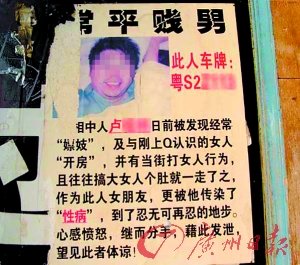 常平贱男
此人车牌:
粤S2
相中人卢 日前被发现经常
“嫖妓”,及与刚上Q认识的女人
“开房”,并有当街打女人行为,
且往往搞大女人个肚就一走了之,
作为此人女朋友,更被他传染了
“性病”,到了忍无可再忍的地步。
心感愤怒,继而分手,藉此发泄,
望见此者体谅!
广州日报